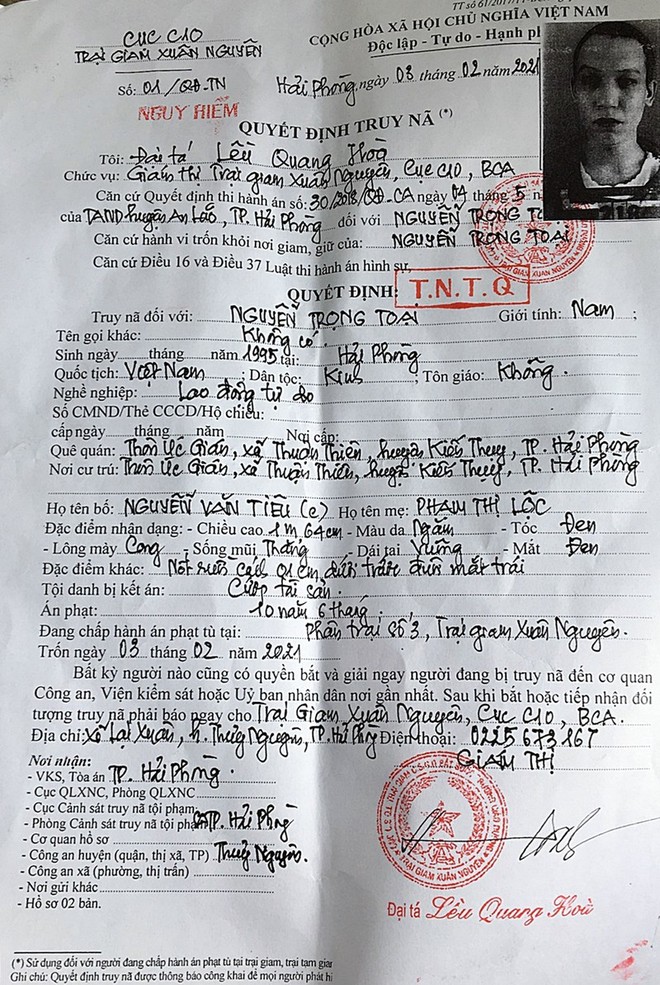 TT số 61/2017/TT-
CỤC C10
TRẠI GIAM XUÂN NGUYÊN
CỘNG HÒA XÃ HỘI CHỦ NGHĨA VIỆT NAM
Độc lập - Tự do - Hạnh ph
Số: 01/QĐ-TN
Hải Phòng, ngày 03 tháng 02 năm 2021
NGUY HIỂM
QUYẾT ĐỊNH TRUY NÃ (*)
Tôi: Đại tá Lều Quang Hoà
Chức vụ: Giám thị Trại giam Xuân Nguyên, Cục C10, BCA
Căn cứ Quyết định thi hành án số: 30/2018/QĐ-CA ngày 04 tháng 5
của TAND huyện An Lão, TP. Hải Phòng đối với NGUYỄN TRỌNG TOẠI
Căn cứ hành vi trốn khỏi nơi giam, giữ của: NGUYỄN TRỌNG TOẠI
Căn cứ Điều 16 và Điều 37 Luật thi hành án hình sự,
QUYẾT ĐỊNH: T.N.T.Q
Truy nã đối với: NGUYỄN TRỌNG TOẠI Giới tính: Nam ;
Tên gọi khác: Không có
Sinh ngày tháng năm 1995 tại: Hải Phòng
Quốc tịch: Việt Nam ; Dân tộc: Kinh ; Tôn giáo: Không
Nghề nghiệp: Lao động tự do
Số CMND/Thẻ CCCD/Hộ chiếu:
cấp ngày tháng năm Nơi cấp:
Quê quán: Thôn Úc Gián, xã Thuận Thiên, huyện Kiến Thụy, TP. Hải Phòng
Nơi cư trú: Thôn Úc Gián, xã Thuận Thiên, huyện Kiến Thụy, TP. Hải Phòng
Họ tên bố: NGUYỄN VĂN TIÊU (c) Họ tên mẹ: PHẠM THỊ LỘC
Đặc điểm nhận dạng: - Chiều cao 1m 64cm - Màu da Ngăm - Tóc Đen
- Lông mày Cong - Sống mũi Thẳng - Dái tai Vuông - Mắt Đen
Đặc điểm khác: Nốt ruồi cách 01 cm dưới trước đuôi mắt trái
Tội danh bị kết án: Cướp tài sản.
Án phạt: 10 năm 6 tháng.
Đang chấp hành án phạt tù tại: Phân trại số 3, Trại giam Xuân Nguyên.
Trốn ngày 03 tháng 02 năm 2021
Bất kỳ người nào cũng có quyền bắt và giải ngay người đang bị truy nã đến cơ quan
Công an, Viện kiểm sát hoặc Uỷ ban nhân dân nơi gần nhất. Sau khi bắt hoặc tiếp nhận đối
tượng truy nã phải báo ngay cho Trại Giam Xuân Nguyên, Cục C10, BCA.
Địa chỉ: Xã Lại Xuân, h. Thủy Nguyên, TP. Hải Phòng Điện thoại: 0225 673 167
GIÁM THỊ
Nơi nhận:
- VKS, Tòa án TP. Hải Phòng.
- Cục QLXNC, Phòng QLXNC
- Cục Cảnh sát truy nã tội phạm
- Phòng Cảnh sát truy nã tội phạm CATP. Hải Phòng
- Cơ quan hồ sơ
- Công an huyện (quận, thị xã, TP) Thuỷ Nguyên.
- Công an xã (phường, thị trấn)
- Nơi gửi khác
- Hồ sơ 02 bản.
TRẠI GIAM XUÂN NGUYÊN
Đại tá Lều Quang Hoà
(*) Sử dụng đối với người đang chấp hành án phạt tù tại trại giam, trại tạm giam
Ghi chú: Quyết định truy nã được thông báo công khai để mọi người phát hi